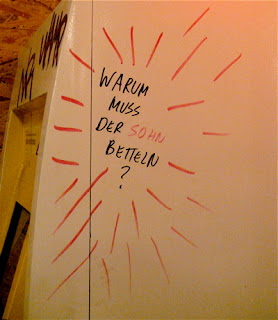 WARUM
MUSS
DER SOHN
BETTELN
?